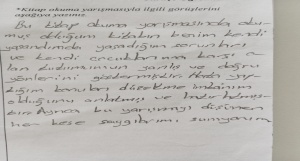 "Kitap okuma yarışmasıyla ilgili görüşlerini
aşağıya yazınız.
Bu kitap okuma yarışmasında oku-
muş olduğum kitabın benim kendi
yaşantımda yaşadığım sorunları
ve kendi çocuklarıma karşı o
lan durumumun yanlış ve doğru
yönlerini göstermiştir. Hata yap-
tığım konuları düzeltme imkanım
olduğunu anlatmış ve
Ayrıca bu yarışmayı düşünen
her kese saygılarımı sunuyorum